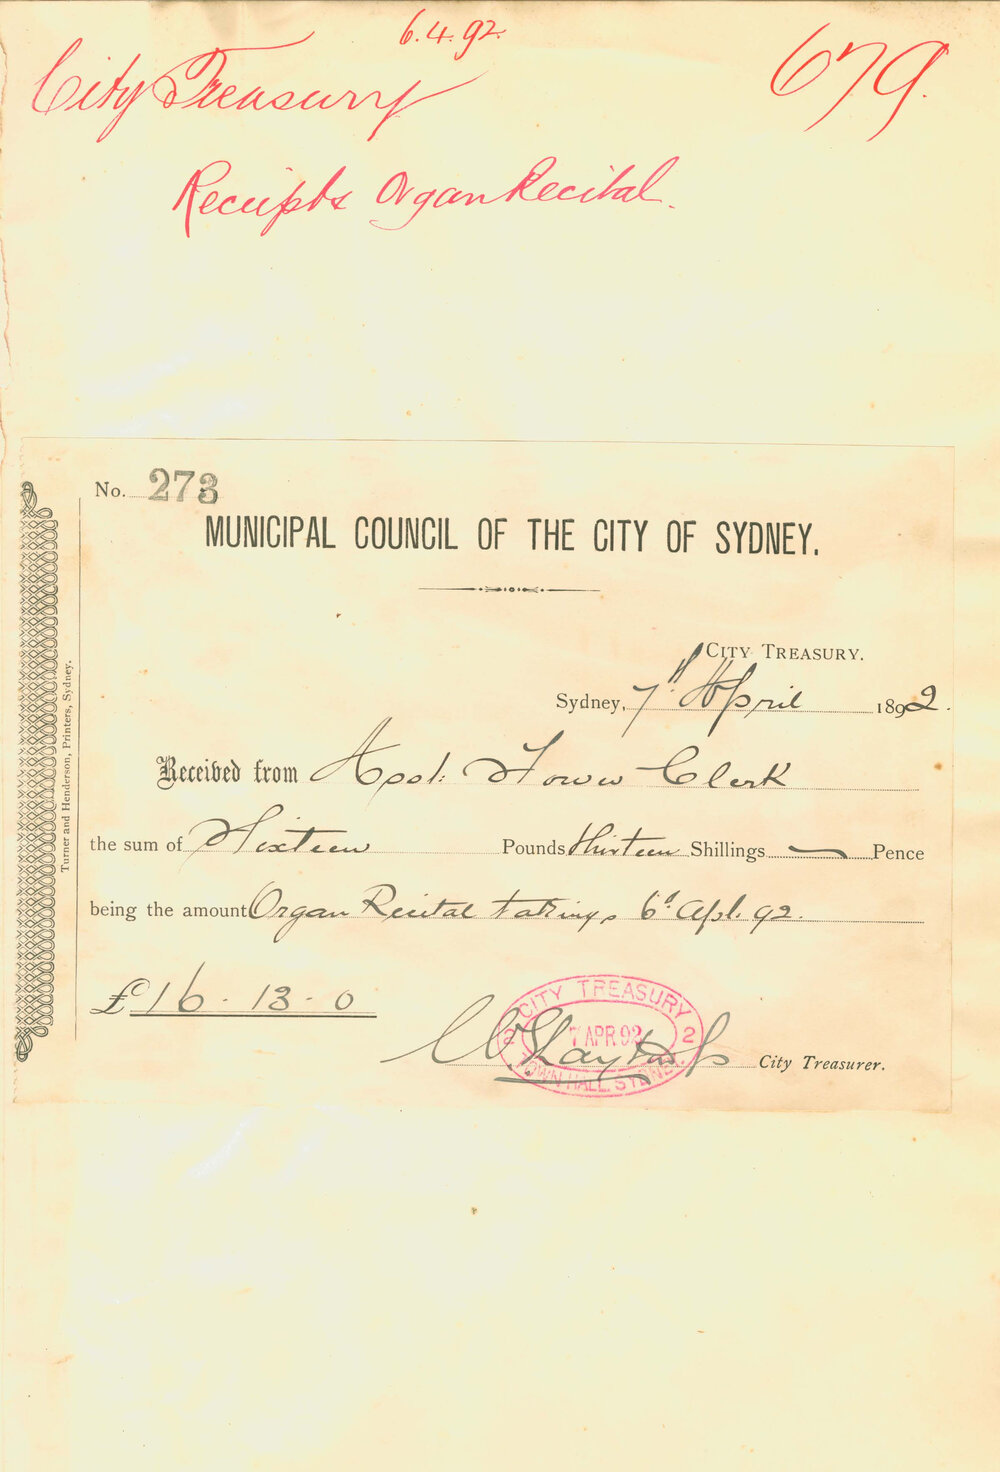 6.4.92.
City Treasury 679.
Receipts Organ Recital.
No. 273
MUNICIPAL COUNCIL OF THE CITY OF SYDNEY.
CITY TREASURY.
Sydney, 7th April 1892.
Received from Asst: Town Clerk
the sum of Sixteen Pounds Thirteen Shillings — Pence
being the amount Organ Recital takings 6th Apl. 92.
£16-13-0
City Treasurer.
CITY TREASURY
2 7 APR 92 2
TOWN HALL SYDNEY
Turner and Henderson, Printers, Sydney.